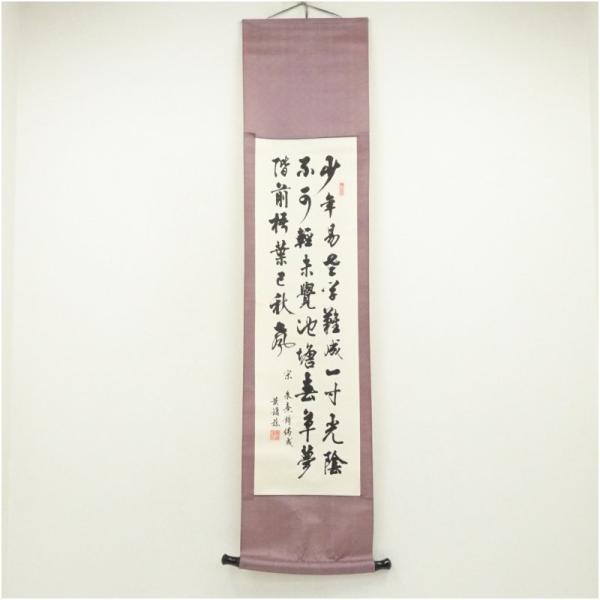 少年易老学難成一寸光陰
不可輕未覺池塘春草夢
階前梧葉已秋風
宋 朱熹詩偶成
黃